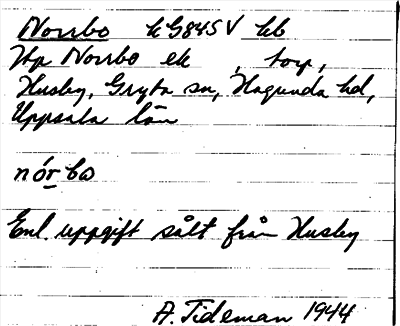 Norrbo kG845V hb
Norrbo ek , torp,
Husby, Gryta sn, Hagunda hd,
Uppsala län
nór bo
Enl. uppgift sålt från Husby
A. Tideman 1944